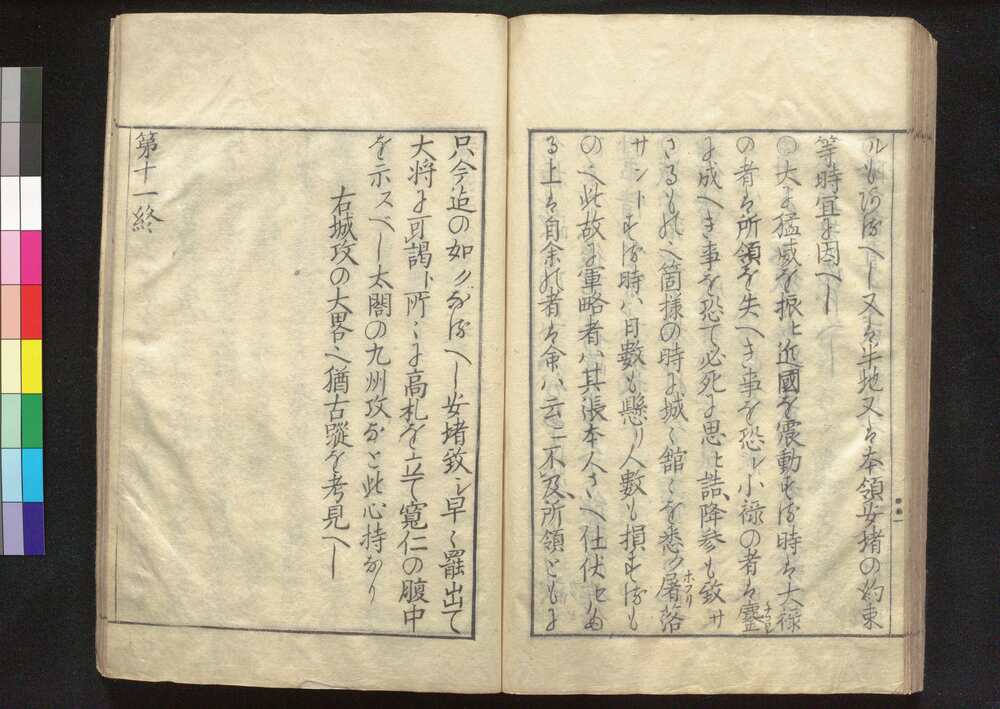 ルも阿るへし又ハ半地又ハ本領安堵の約束
等時宜に因へし
○大に猛威を振ヒ近國を震動する時ハ大禄
の者ハ所領を失へき事を恐レ小禄の者ハ鏖
に成へき事を恐て必死に思ヒ詰降参も致サ
さるもの也箇様の時に城〻舘〻を悉ク屠落
サントする時ハ日數も懸リ人數も損するも
の也此故に軍略者ハ其張本人さへ仕伏セぬ
る上ハ自余の者ハ命ハ云ニ不及所領ともに
只今迠の如クなるへし安堵致シ早〻罷出て
大将に可謁ト所〻に高札を立て寛仁の腹中
を示スへし太閤の九州攻なと此心持なり
右城攻の大畧也猶古蹤を考見へし
第十一終